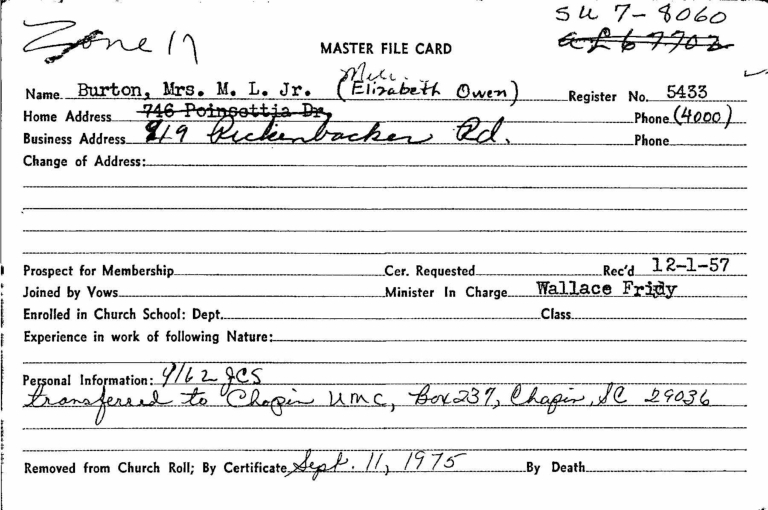 SU 7-8060
Zone 17
AL 6 7702
MASTER FILE CARD
Name Burton, Mrs. M. L. Jr. (Elizabeth Owen) Register No. 5433
Home Address 746 Poinsettia Dr. Phone (4000)
Business Address 919 Rickenbacker Rd. Phone
Change of Address:
Prospect for Membership Cer. Requested Rec'd 12-1-57
Joined by Vows Minister In Charge Wallace Fridy
Enrolled in Church School: Dept. Class
Experience in work of following Nature:
Personal Information: 9/62 JCS
transferred to Chapin UMC, Box 237, Chapin, SC 29036
Removed from Church Roll; By Certificate Sept. 11, 1975 By Death